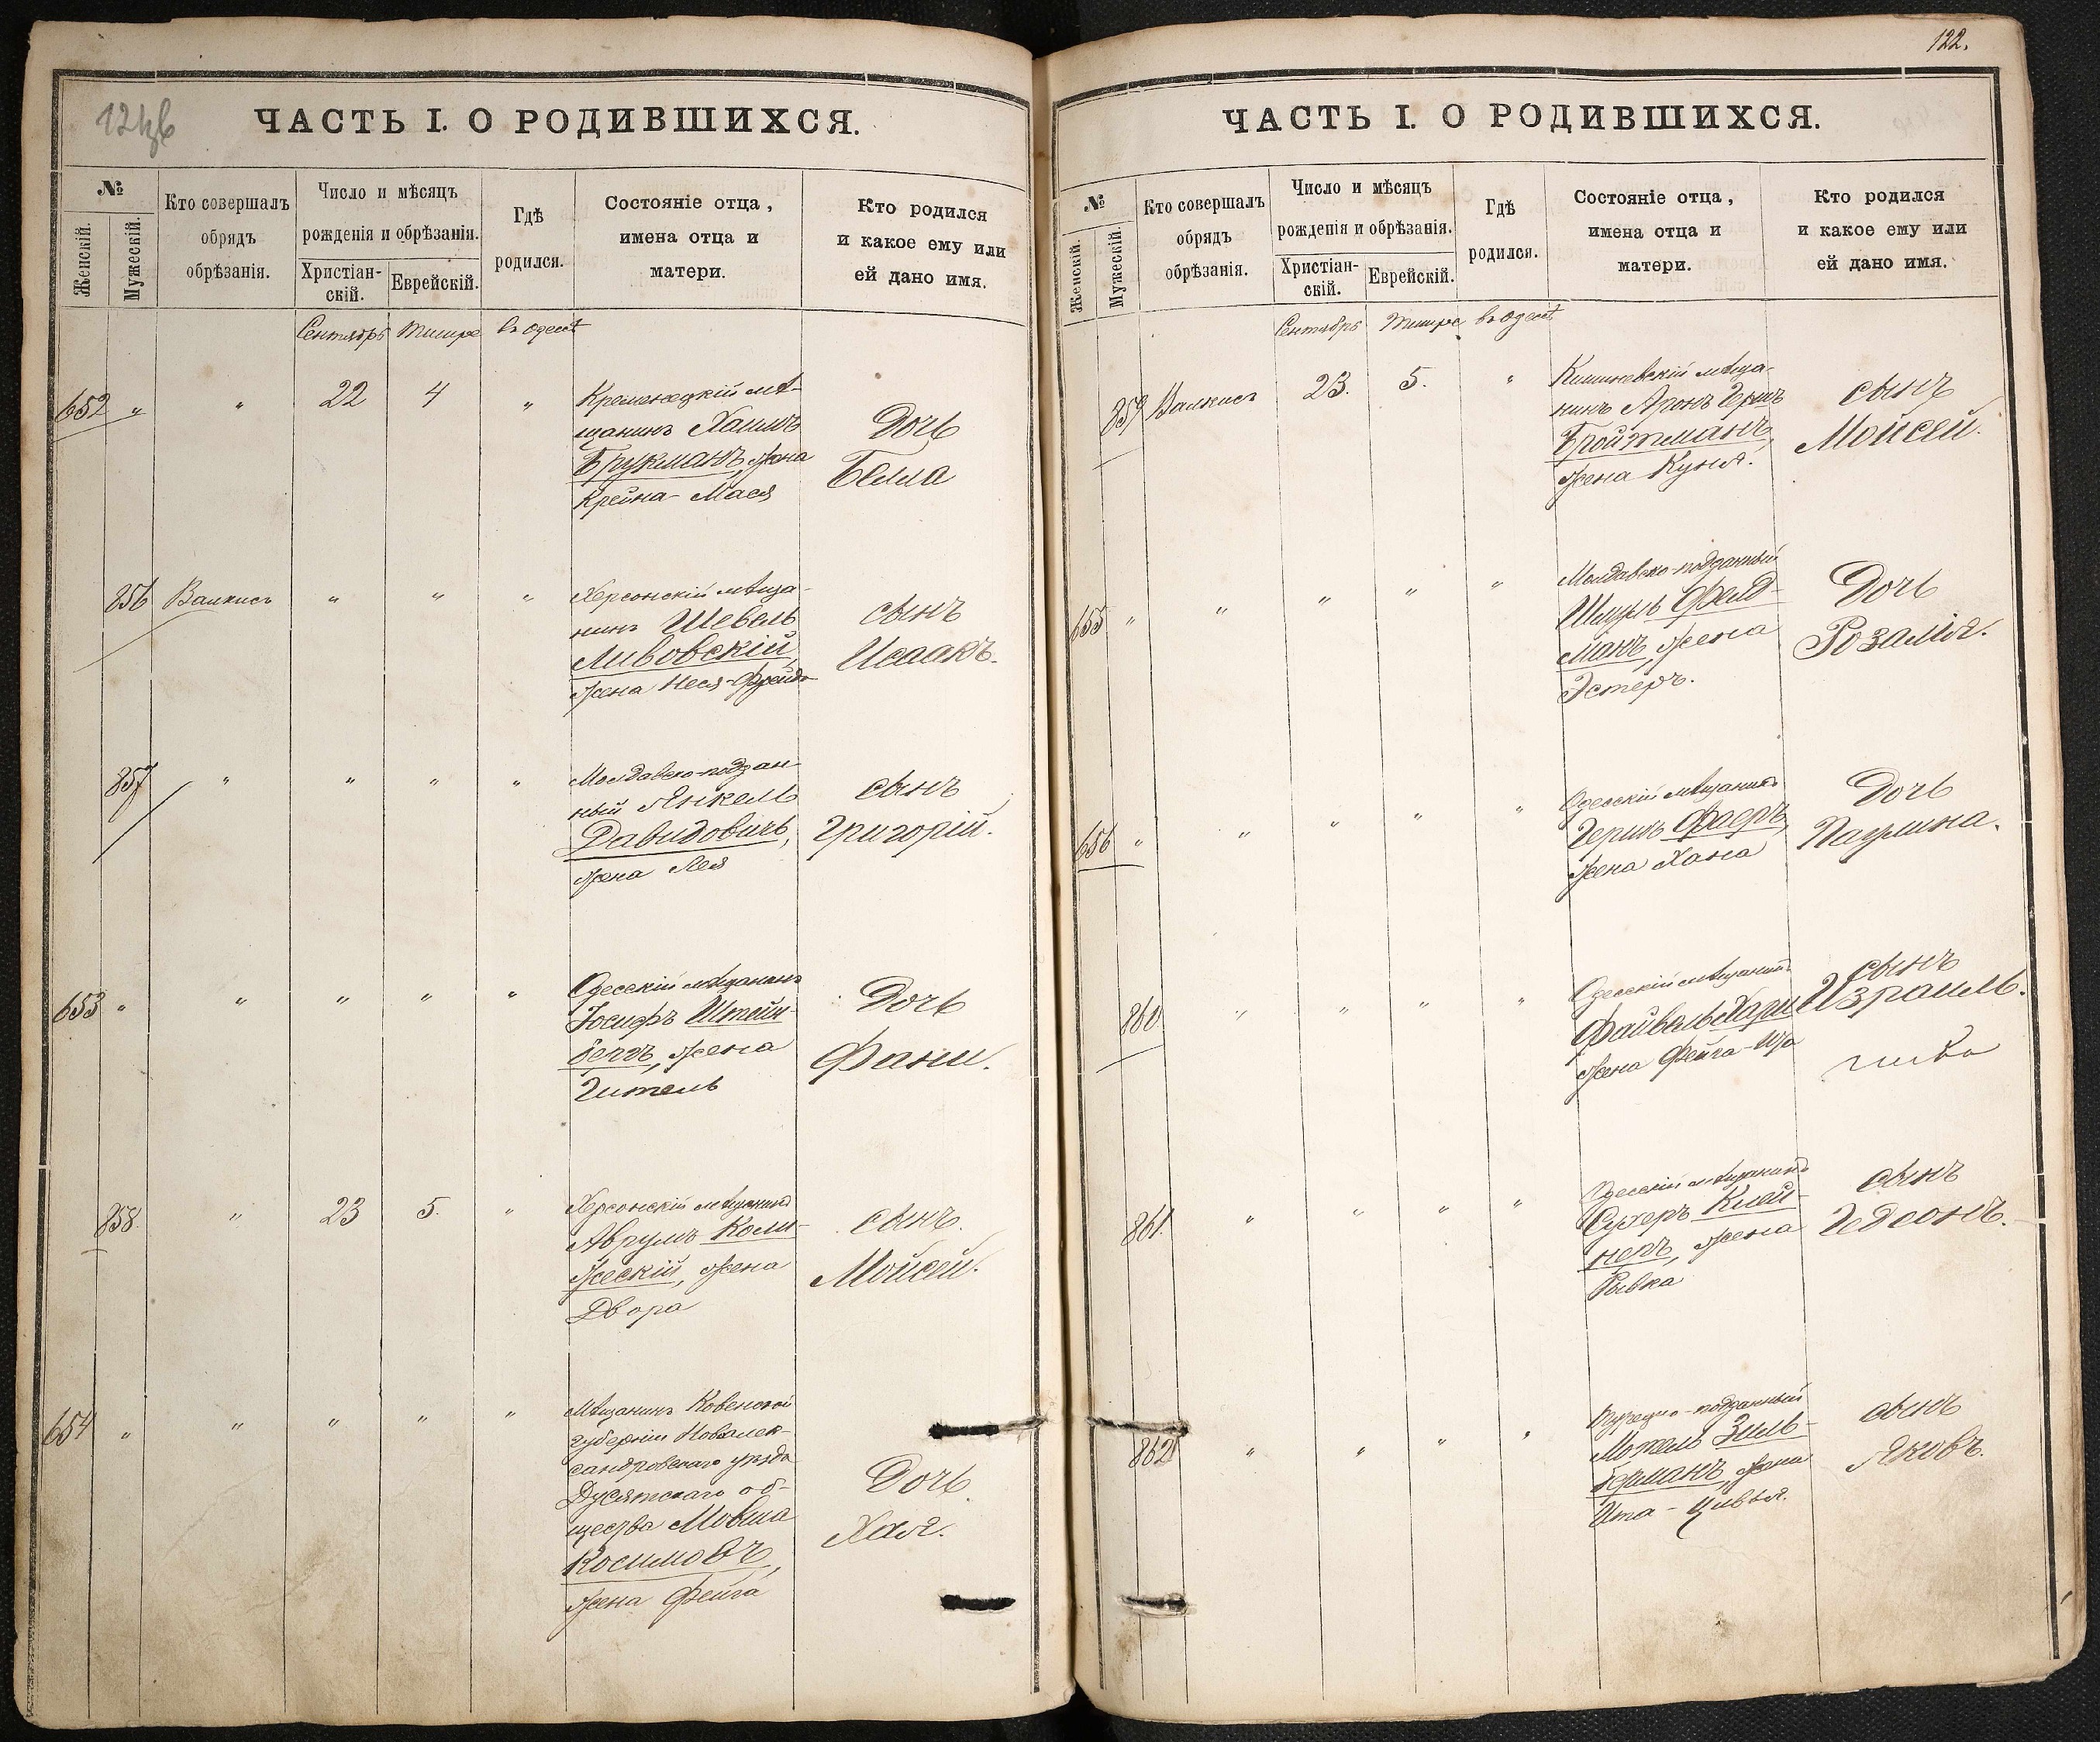 ЧАСТЬ I. О РОДИВШИХСЯ.
№
Женскій.
Мужескій.
Кто совершалъ
обрядъ
обрѣзанія.
Число и мѣсяцъ
рожденія и обрѣзанія.
Христіан-
скій.
Еврейскій.
Гдѣ
родился.
Состояніе отца,
имена отца и
матери.
Кто родился
и какое ему или
ей дано имя.
Сентябрь Тишре въ Одессѣ
652 " " 22 4 "
Кременецкій мѣ-
щанинъ Хаимъ
Брукманъ, жена
Крейна-Мася
Дочь
Белла
856 Валкисъ " " "
Херсонскій мѣща-
нинъ Шевель
Ливовскій,
жена Неся-Фрейда
сынъ
Исаакъ.
857 " " " "
Молдавско-поддан-
ный Янкель
Давидовичъ,
жена Лея
сынъ
Григорій.
653 " " " " "
Одесскій мѣщанинъ
Іосифъ Штейн-
бергъ, жена
Гитель
Дочь
Фани.
858. " 23 5. "
Херсонскій мѣщанинъ
Аврумъ Коли-
жескій, жена
Двора
сынъ.
Мойсей.
654 " " " " "
Мѣщанинъ Ковенской
губерніи Новалек-
сандровскаго уѣзда
Дусятскаго об-
щества Мовша
Косимовъ,
жена Фейга
Дочь
Хая.
122.
ЧАСТЬ I. О РОДИВШИХСЯ.
№
Женскій.
Мужескій.
Кто совершалъ
обрядъ
обрѣзанія.
Число и мѣсяцъ
рожденія и обрѣзанія.
Христіан-
скій.
Еврейскій.
Гдѣ
родился.
Состояніе отца,
имена отца и
матери.
Кто родился
и какое ему или
ей дано имя.
Сентябрь Тишре въ Одессѣ
859 Валкисъ 23. 5. "
Кишиневскій мѣща-
нинъ Аронъ Гершъ
Бройтманъ,
жена Куня.
сынъ
Мойсей.
655 " " " " "
Молдавско-подданный
Шмуль Фельд-
манъ, жена
Эстеръ.
Дочь
Розалія.
656 " " " " "
Одесскій мѣщанинъ
Гершъ Фаеръ,
жена Хана
Дочь
Паулина.
860 " " " "
Одесскій мѣщанинъ
Файвель Хари
жена Фейга-
сынъ
Израиль.
861. " " " "
Одесскій мѣщанинъ
Сухеръ Клей-
неръ, жена
Рывка
сынъ
Гедеонъ.
862 " " " "
Турецко-подданный
Мотель Зиль-
берманъ, жена
Ита-Цивья.
сынъ
Яковъ.